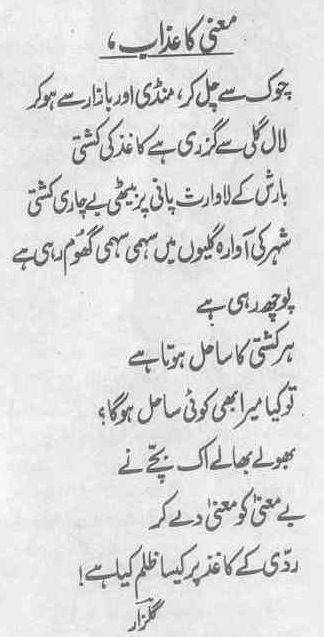 معنی کا عذاب،
چوک سے چل کر، منڈی اور بازار سے ہو کر
لال گلی سے گزری ہے کاغذ کی کشتی
بارش کے لاوارث پانی پر بیٹھی بے چاری کشتی
شہر کی آوارہ گلیوں میں سہمی سہمی گھُوم رہی ہے
پوچھ رہی ہے
ہر کشتی کا ساحل ہوتا ہے
تو کیا میرا بھی کوئی ساحل ہوگا؟
بھولے بھالے اک بچّے نے
بے معنیٰ کو معنیٰ دے کر
ردّی کے کاغذ پر کیسا ظلم کیا ہے!
گلزار